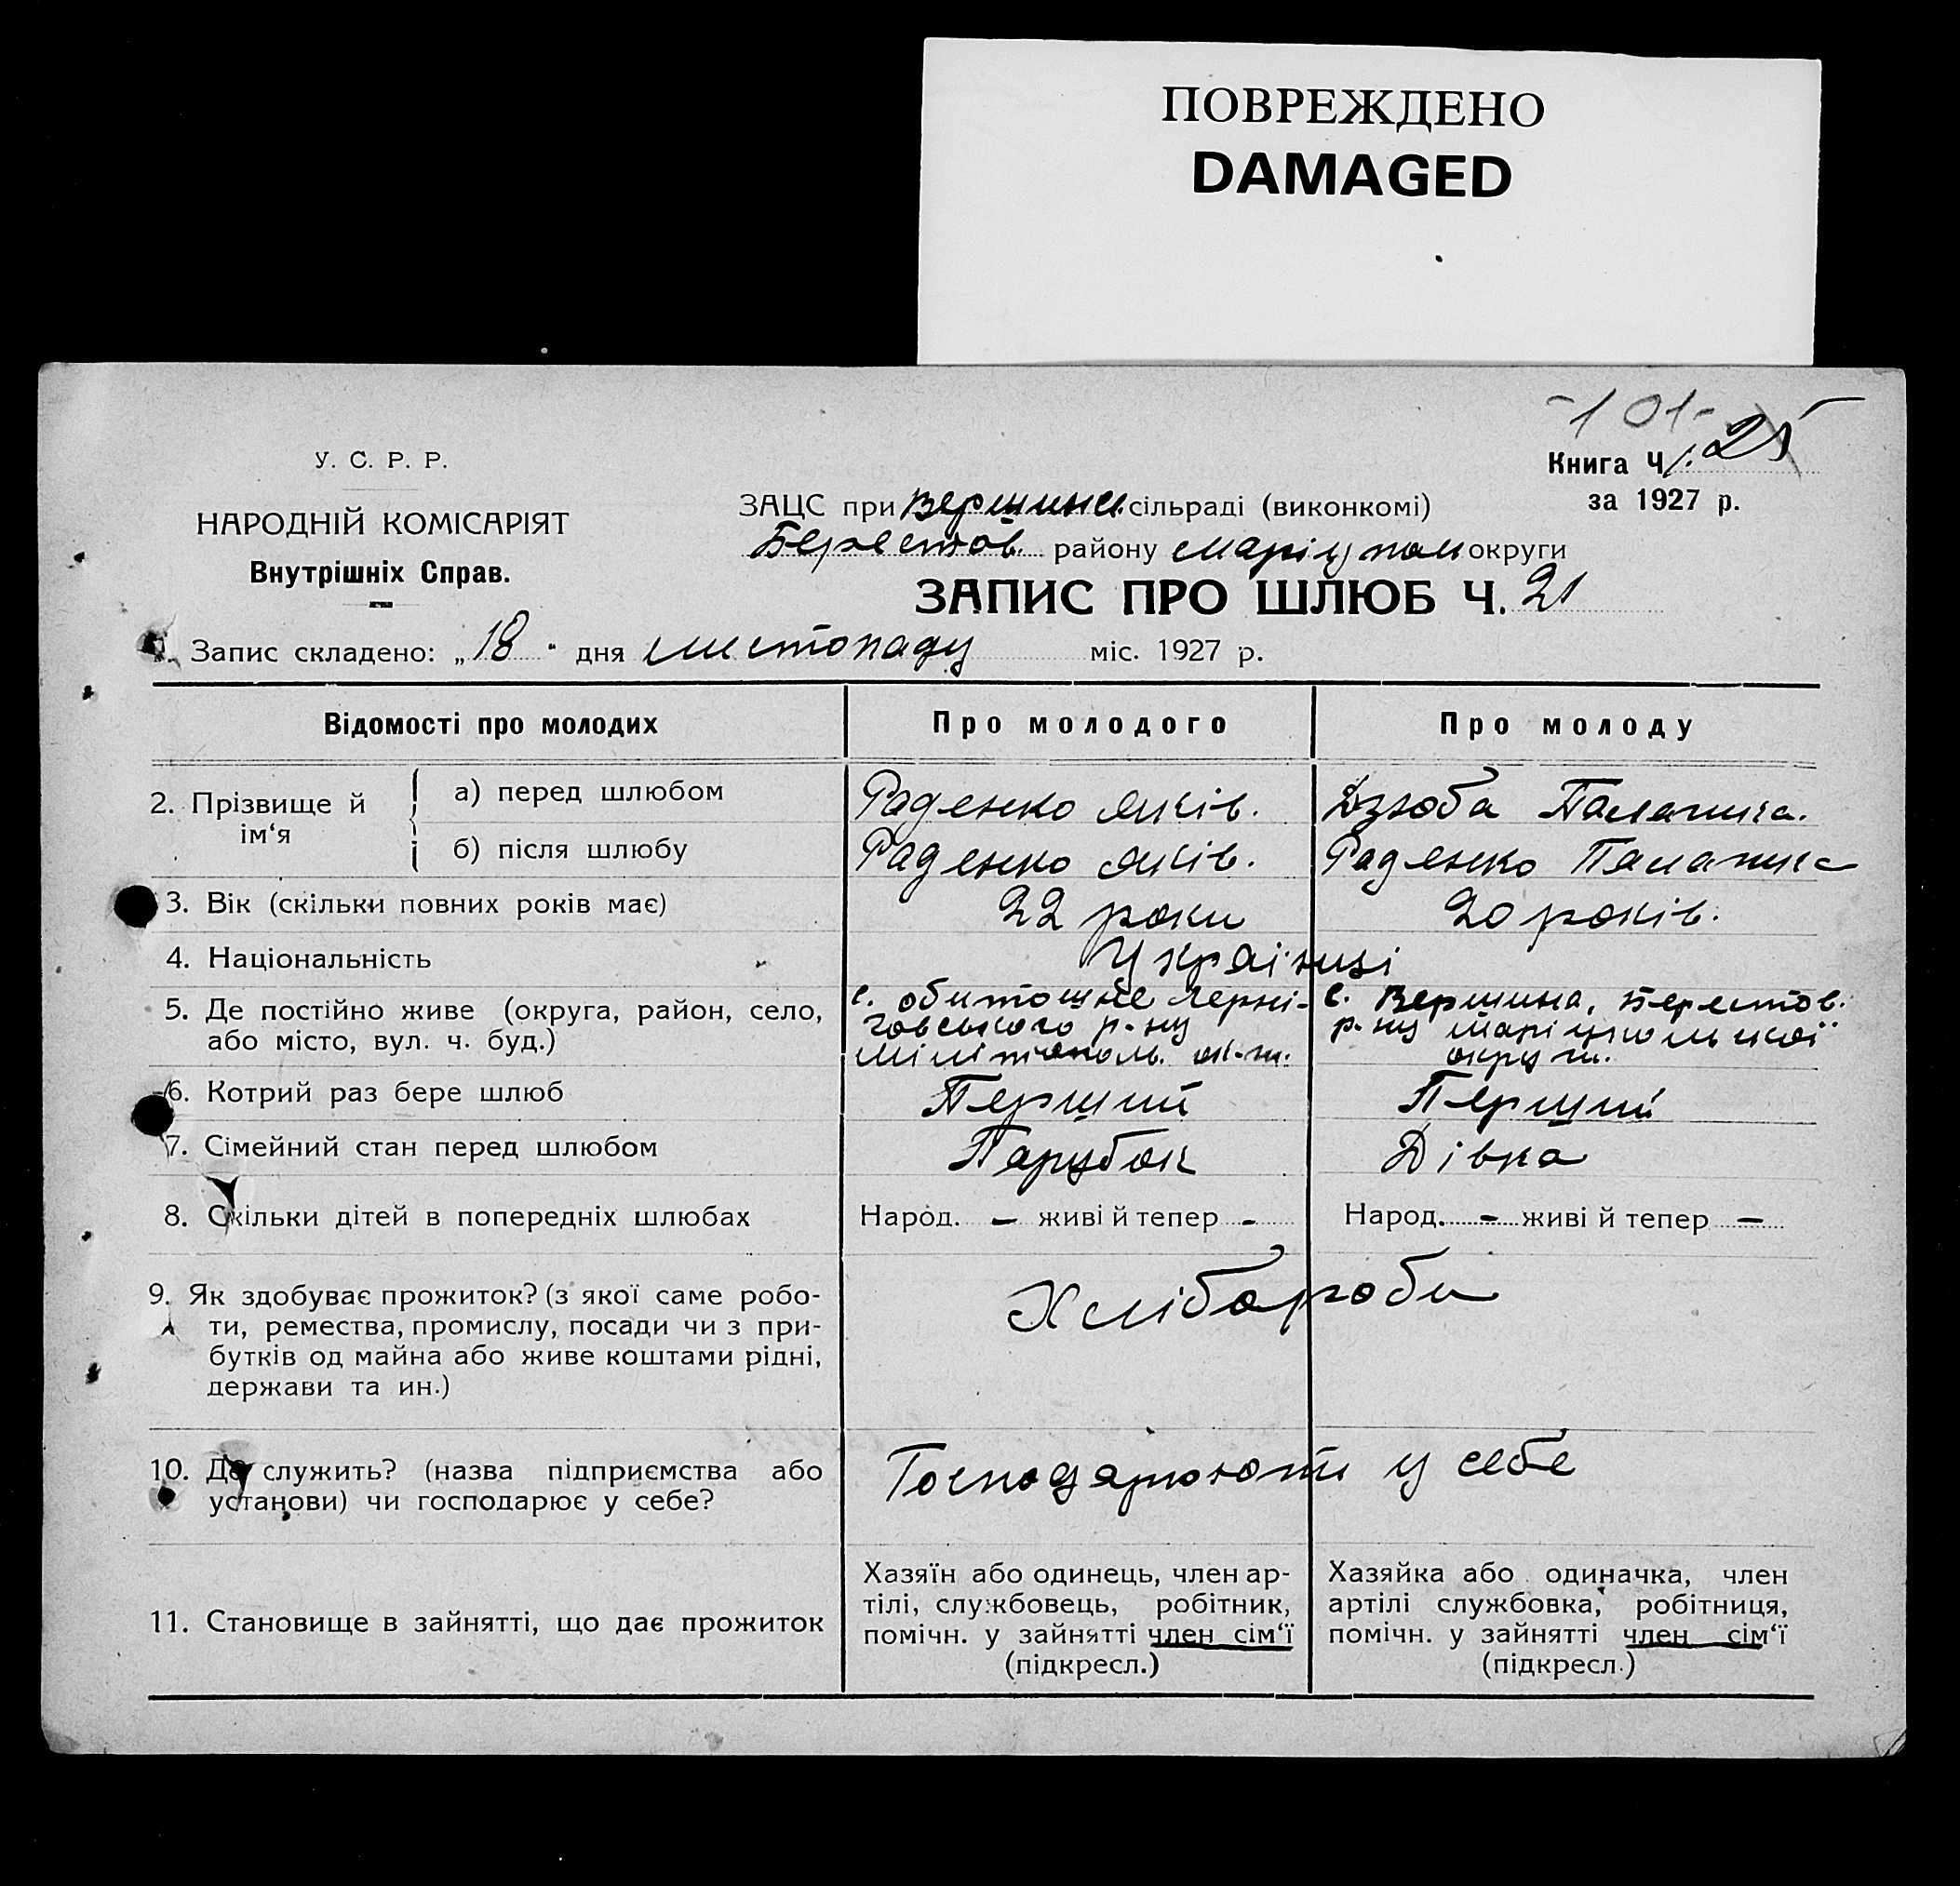 ПОВРЕЖДЕНО
DAMAGED
-101-
У. С. Р. Р.
НАРОДНІЙ КОМІСАРІЯТ
Внутрішніх Справ.
Книга Ч. 25
за 1927 р.
ЗАЦС при Вершин. сільраді (виконкомі)
Берестов. району Маріупол округи
ЗАПИС ПРО ШЛЮБ Ч. 21
1. Запис складено: „18" дня листопаду міс. 1927 р.
Відомості про молодих
Про молодого
Про молоду
2. Прізвище й ім‘я
а) перед шлюбом
Раденко Яків.
Дзюба Палажка.
б) після шлюбу
Раденко Яків.
Раденко Палажка
3. Вік (скільки повних років має)
22 роки
20 років.
4. Національність
Українці
5. Де постійно живе (округа, район, село,
або місто, вул. ч. буд.)
с. Обиточне Черні-
говського р-ну
Мілітополь. ок-ги.
с. Вершина, Берестов.
р-ну Маріупольскої
округи.
6. Котрий раз бере шлюб
Перший
Перший
7. Сімейний стан перед шлюбом
Парубок
Дівка
8. Скільки дітей в попередніх шлюбах
Народ. - живі й тепер -
Народ. - живі й тепер -
9. Як здобуває прожиток? (з якої саме робо-
ти, ремества, промислу, посади чи з при-
бутків од майна або живе коштами рідні,
держави та ин.)
Хлібороби
10. Де служить? (назва підприємства або
установи) чи господарює у себе?
Господарюють у себе
11. Становище в зайнятті, що дає прожиток
Хазяїн або одинець, член ар-
тілі, службовець, робітник,
помічн. у зайнятті член сім‘ї
(підкресл.)
Хазяйка або одиначка, член
артілі службовка, робітниця,
помічн. у зайнятті член сім‘ї
(підкресл.)